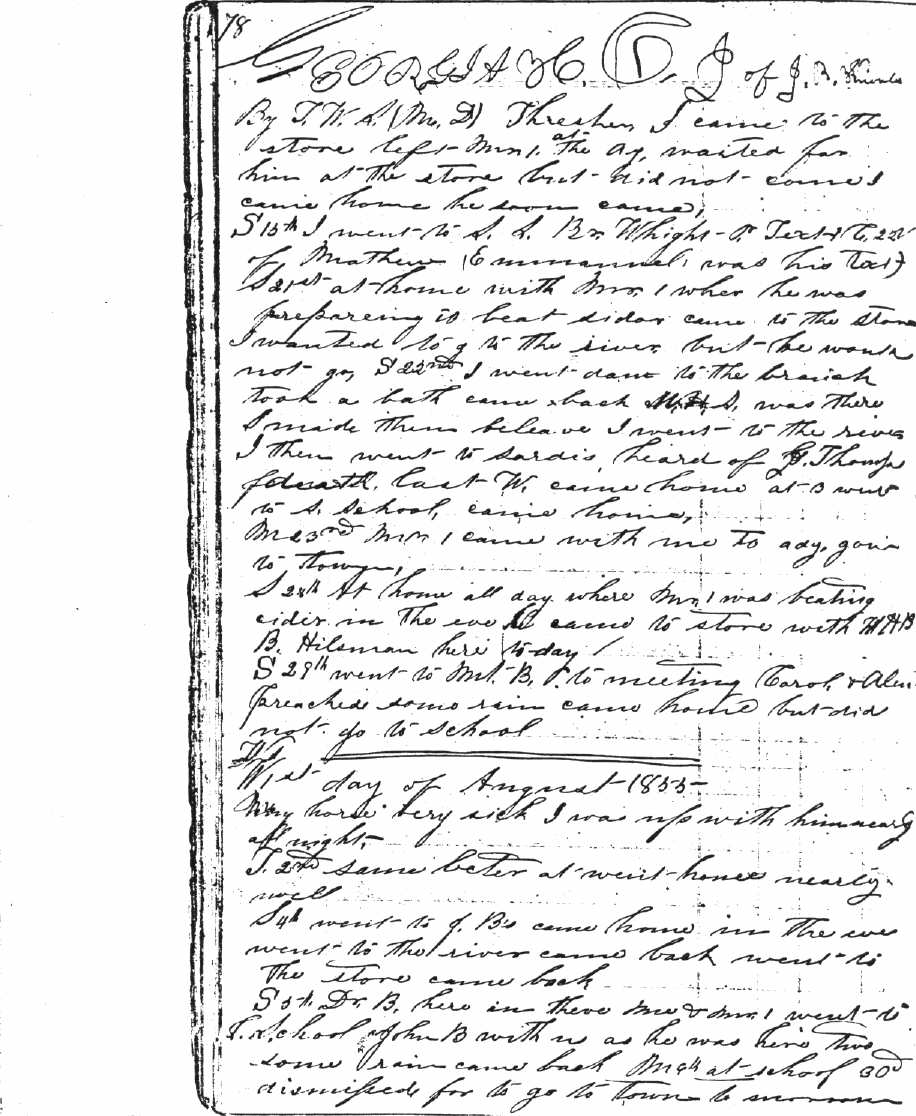 78
GEORGIA H. C. J of J. B.
By T. W. S. (M. D) Thresher, I came to the
store left Mr. 1. at the ay, waited for
him at the store but did not come I
came home he soon came,
S 15th I went to S. S. Br. Whight P. Text 1 C. 22 v
of Mathew (Emmanuel was his text)
S 21st at home with Mr. 1 wher he was
prepareing to beat sidar came to the store
I wanted to g to the river but he would
not go, S 22nd I went down to the branch
took a bath came back S. was there
I made them beleave I went to the river
I then went to sardis, heard of J. Thomps
death last W. came home at 3 went
to S. School, came home,
M 23rd Mr. 1 came with me to ady, goin
to town,
S 28th At home all day where Mr. 1 was beating
cider in the eve he came to store with HHB
B. Hilsman here to-day
S 29th went to Mt. B. P. to meeting Carol. & Alen
preached some rain came home but did
not go to school
W 1st day of August 1855
My horse very sick I was up with him nearly
all night,
T. 2nd same beter at went home nearly
well
S 4th went to J. B's came home in the eve
went to the river came back went to
the store came back
S 5th Dr. B. here in the eve Me & Mr. 1 went to
S. School & John B with us as he was here two
some rain came back M 6th at school 30d
dismissed for to go to town to morrow